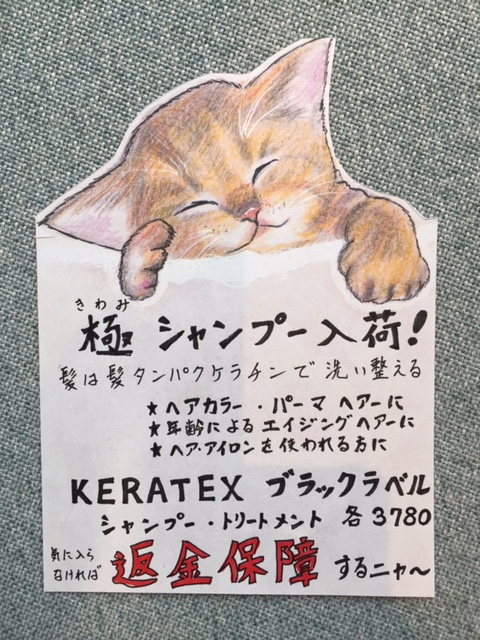 きわみ
極 シャンプー入荷!
髪は髪タンパクケラチンで洗い整える
★ヘアカラー・パーマ ヘアーに
★年齢によるエイジングヘアーに
★ヘア・アイロンを使われる方に
KERATEX ブラックラベル
シャンプー・トリートメント 各3780
気に入ら
なければ 返金保障 するニャ～